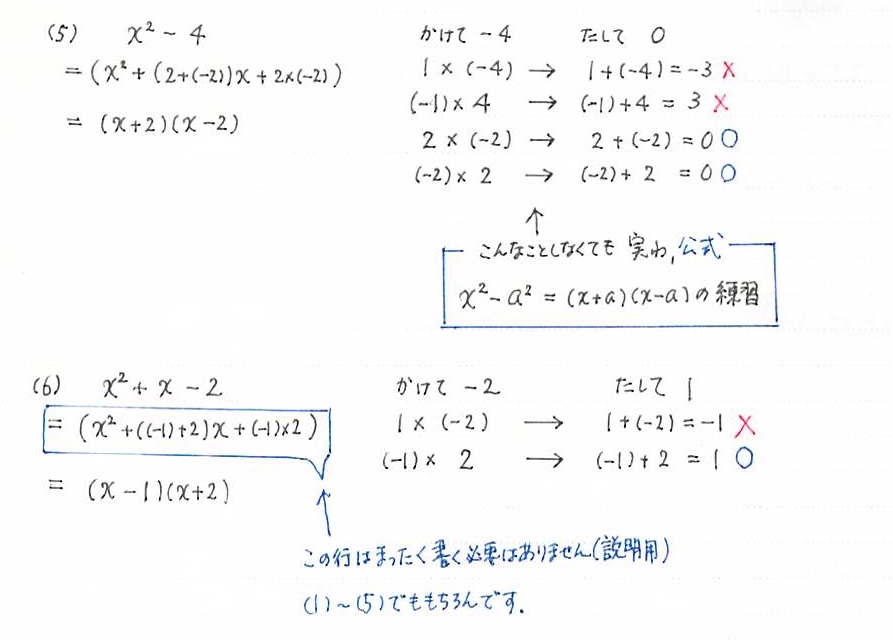 (5) x² - 4
= (x² + (2+(-2))x + 2×(-2))
= (x+2)(x-2)
かけて -4 たして 0
1 × (-4) → 1+(-4) = -3 ×
(-1) × 4 → (-1)+4 = 3 ×
2 × (-2) → 2+(-2) = 0 ○
(-2) × 2 → (-2)+2 = 0 ○
↑
こんなことしなくても 実わ, 公式
x² - a² = (x+a)(x-a) の 練習
(6) x² + x - 2
= (x² + ((-1)+2)x + (-1)×2)
= (x-1)(x+2)
かけて -2 たして 1
1 × (-2) → 1+(-2) = -1 ×
(-1) × 2 → (-1)+2 = 1 ○
↑
この行はまったく書く必要はありません(説明用)
(1)~(5)でももちろんです.